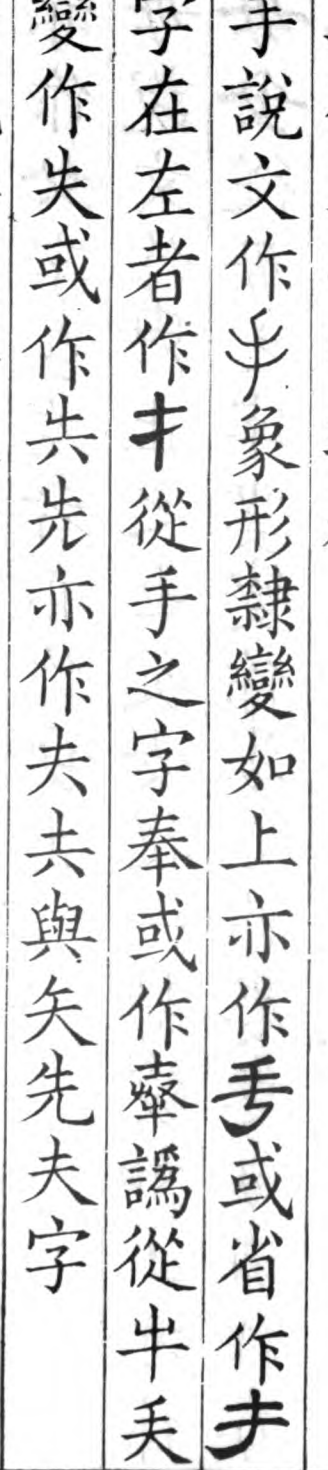 手說文作𠂿象形隸變如上亦作𠂿或省作キ
字在左者作扌從手之字奉或作𡘽譌從牛𡗗
變作失或作𠈌先亦作夫㳟與矢先夫字